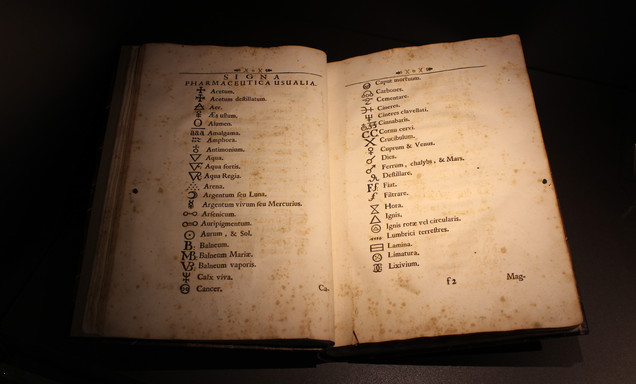 SIGNA
PHARMACEUTICA USUALIA.
Acetum.
Acetum destillatum.
Aer.
Æs ustum.
Alumen.
aaa Amalgama.
Amphora.
Antimonium.
Aqua.
Aqua fortis.
Aqua Regia.
Arena.
Argentum seu Luna.
Argentum vivum seu Mercurius.
Arsenicum.
Auripigmentum.
Aurum, & Sol.
B. Balneum.
MB. Balneum Mariæ.
VB. Balneum vaporis.
Calx viva.
Cancer.
Ca-
Caput mortuum.
Carbones.
Cementare.
Cineres.
Cineres clavellati.
Cinnabaris.
CC Cornu cervi.
Crucibulum.
Cuprum & Venus.
Dies.
Ferrum, chalybs, & Mars.
Destillare.
Fiat.
Filtrare.
Hora.
Ignis.
Ignis rotæ vel circularis.
Lumbrici terrestres.
Lamina.
Limatura.
Lixivium.
f2
Mag-